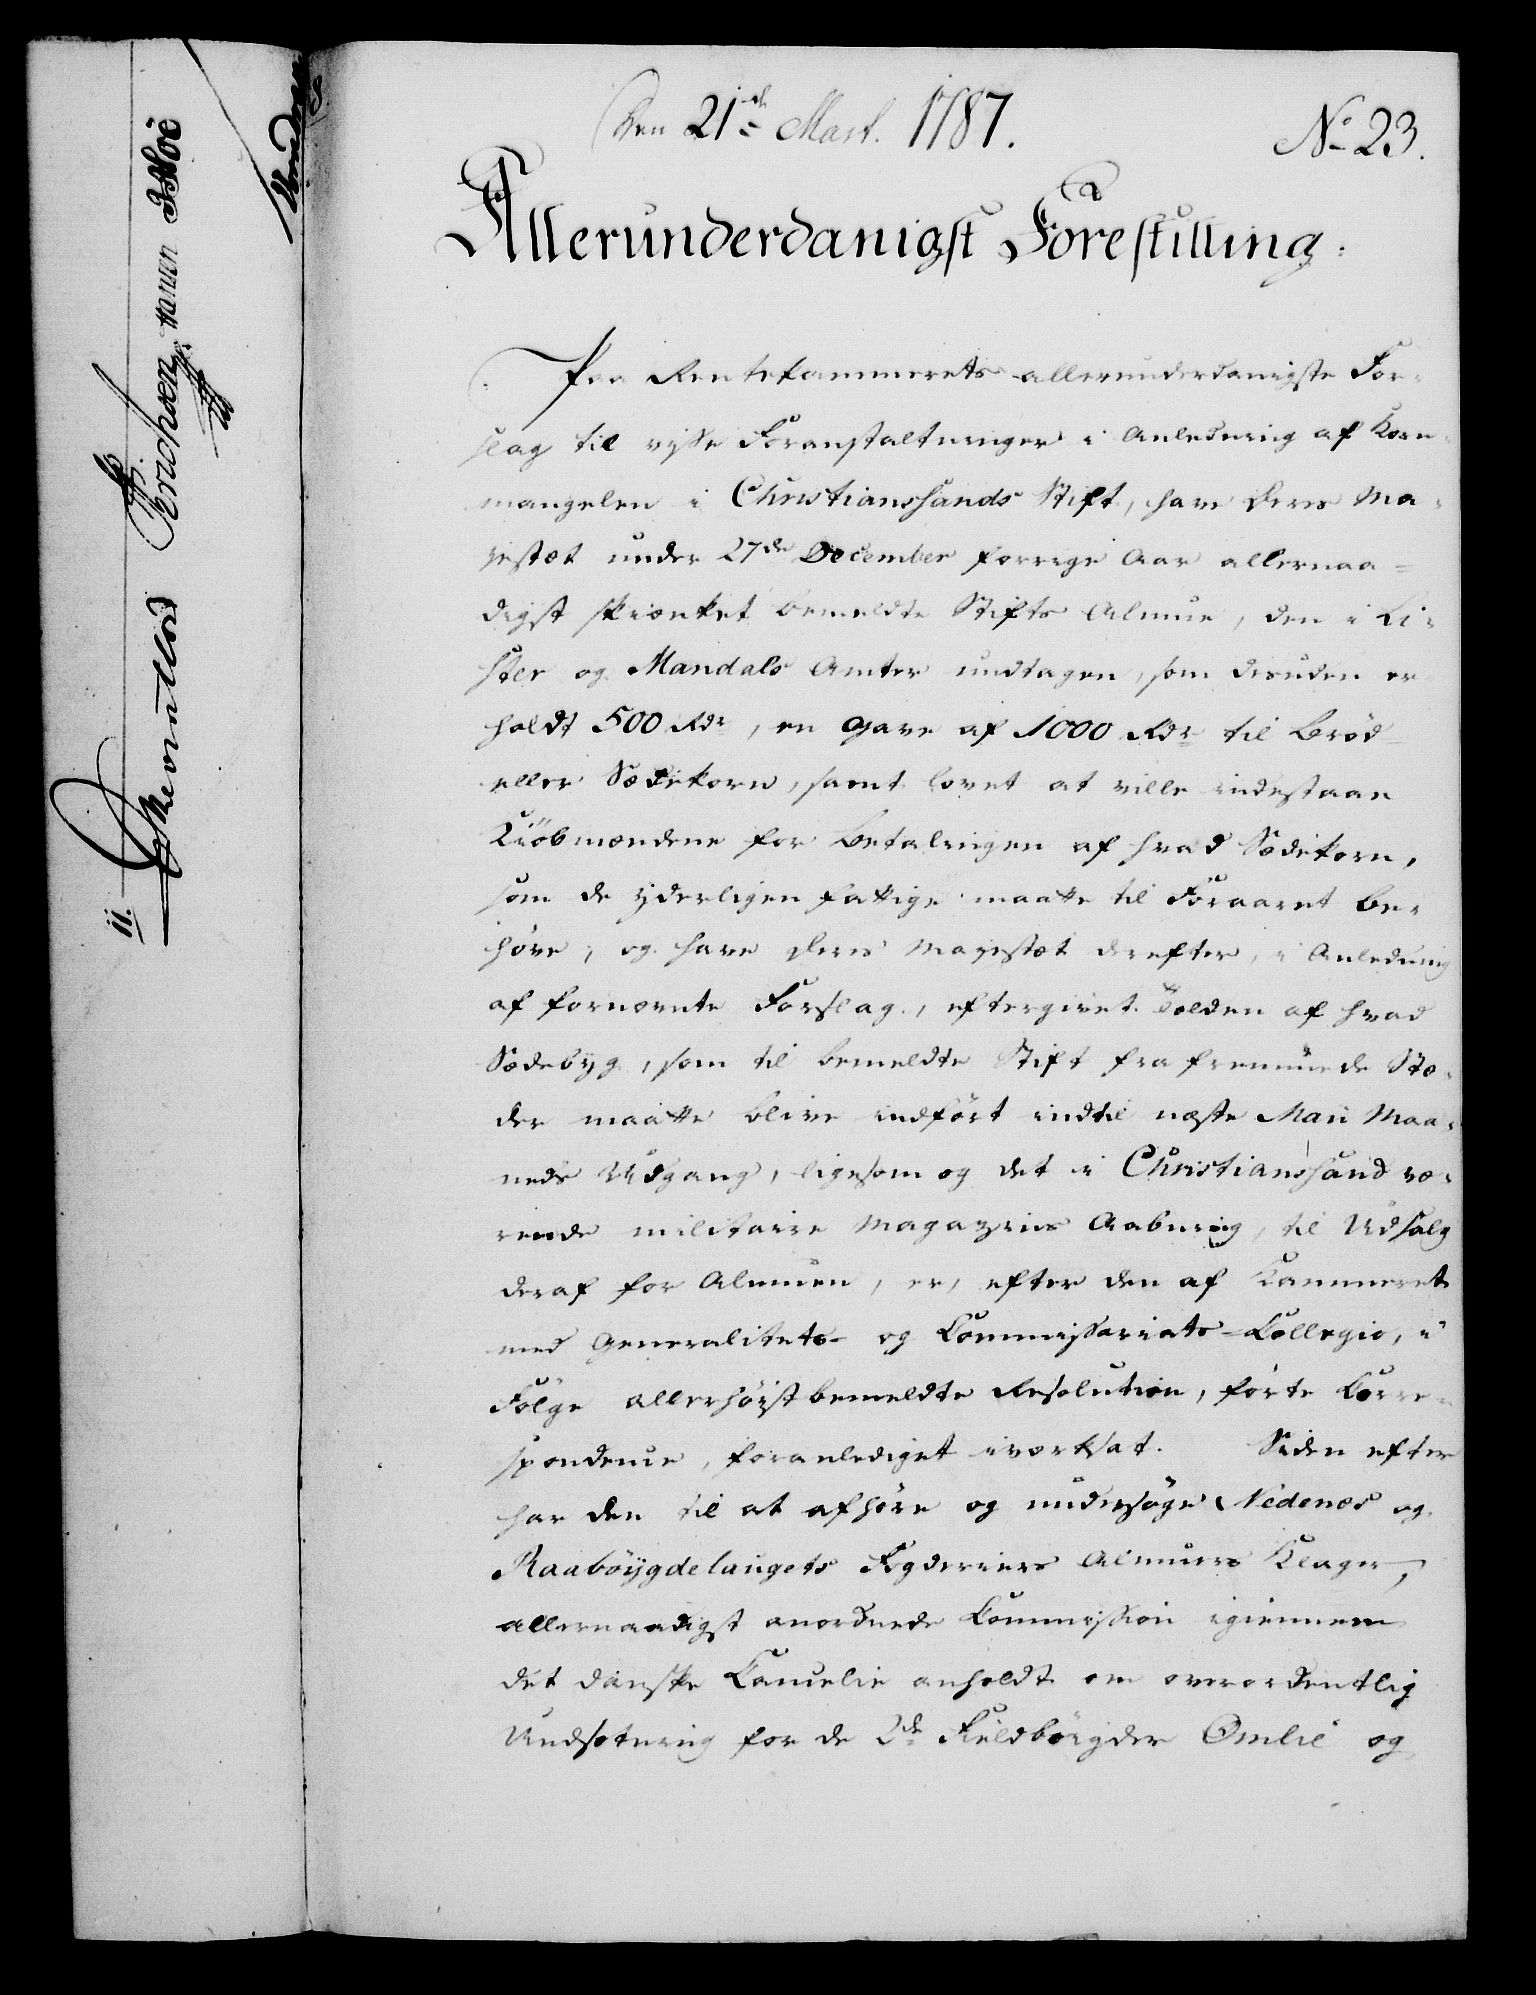 Den 21de Mart. 1787.
No 23.
Allerunderdanigst Forestilling:
Paa Rentekammerets allerunderdanigste For-
slag til visse Foranstaltninger i Anledning af Korn-
mangelen i Christianssands Stift, have Deres Ma-
jestæt under 27de December forrige Aar allernaa-
digst skienket bemeldte Stifts Almue, den i Li-
ster og Mandals Amter undtagen, som desuden er-
holdt 500 Rdr, en Gave af 1000 Rdr til Bröd-
eller Sædekorn, samt lovet at ville indestaae
Kiöbmændene for Betalingen af hvad Sædekorn,
som de yderligen fattige maatte til Foraaret be-
höve; og have Deres Majestæt derefter, i Anledning
af fornævnte Forslag, eftergivet Tolden af hvad
Sædebyg, som til bemeldte Stift fra fremmede Stæ-
der maatte blive indfört indtil næste Maii Maa-
neds Udgang, ligesom og det i Christianssand væ-
rende militaire Magazins Aabning, til Udsalg
deraf for Almuen, er, efter den af Kammeret
med Generalitets- og Commissariats-Collegio, i
Fölge allerhöistbemeldte Resolution, förte Corre-
spondence, foranlediget iværksat. Siden efter
har den til at afhöre og undersöge Nedenæs og
Raaböygdelaugets Fogderiers Almues Klager,
allernaadigst anordnede Commission igiennem
det danske Cancelie anholdt om overordentlig
Undsætning for de 2de Fieldböigder Omlie og
ii.
Erichsen